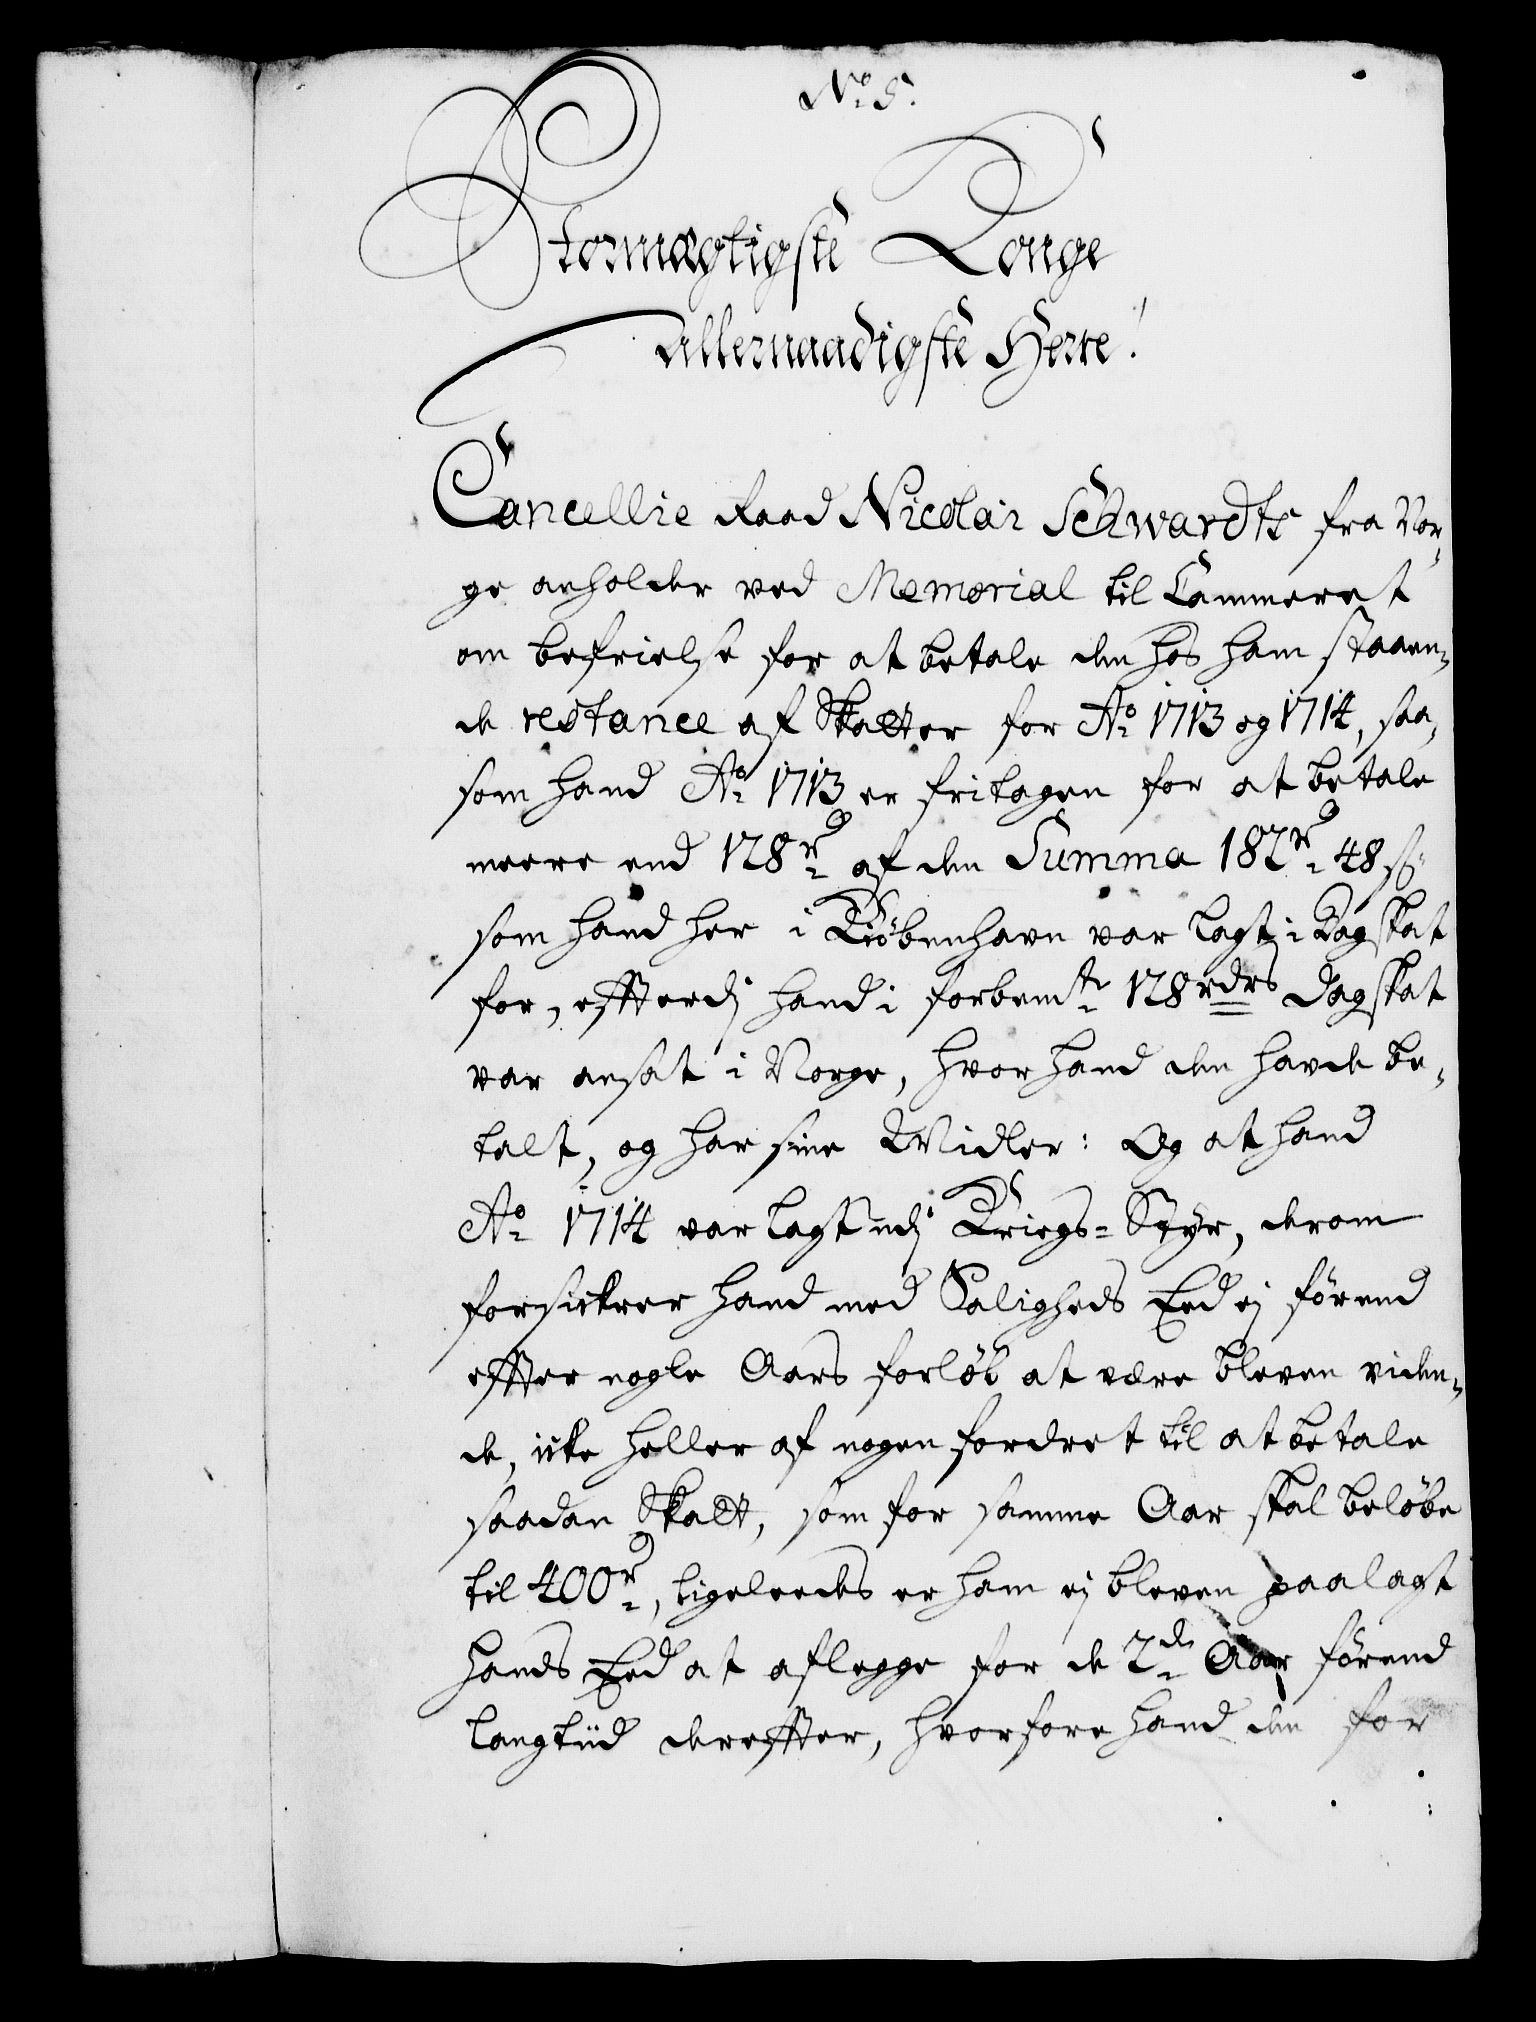 No. 5.
Stormægtigste Konge
Allernaadigste Herre!
Cancellie Raad Nicolai Schwardts fra Nor-
ge anholder ved Memorial til Cammeret
om befrielse for at betale den hos ham staaen-
de restance af Skatter for Ao. 1713 og 1714, saa-
som hand Ao. 1713 er fritagen for at betale
meere end 128 rd. af den Summa 182 rd. 48 ß
som hand her i Kiöbenhavn var lagt i Dagskat
for, efftersdj hand i forbemte 128 rdrs Dagskat
var ansat i Norge, hvor hand den havde be-
talt, og har sine Midler: Og at hand
Ao. 1714 var lagt udj Kriegs-Styr, derom
forsickrer hand med Saligheds Eed ej förend
effter nogle Aars forlöb at være bleven viden-
de, icke heller af nogen fordret til at betale
saadan Skatt, som for samme Aar skal belöbe
til 400 rd., ligeleedes er ham ej bleven paalagt
hands Eed at aflegge for de 2de Aar förend
langtiid dereffter, hvorfore hand den for